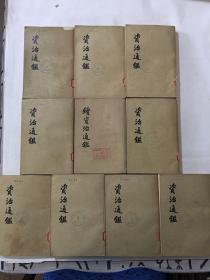 資治通鑑
資治通鑑
資治通鑑
資治通鑑
續資治通鑑
資治通鑑
資治通鑑
資治通鑑
資治通鑑
資治通鑑